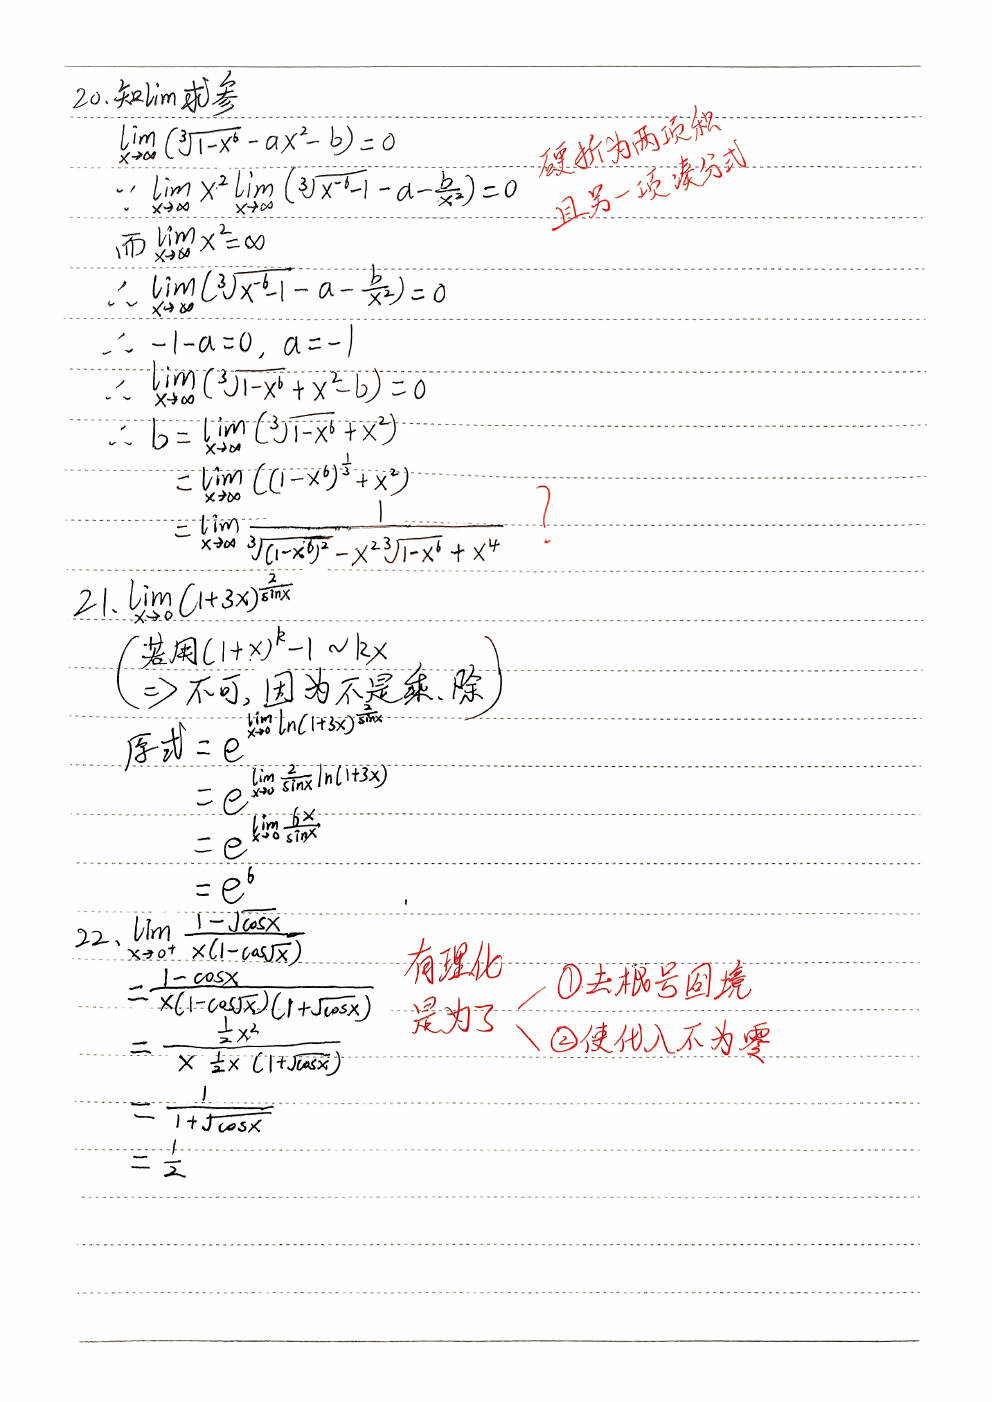 20.知lim求参
lim x→∞ (∛(1-x⁶) - ax² - b) = 0
∵ lim x→∞ x² lim x→∞ (∛(x⁻⁶-1) - a - b/x²) = 0
硬拆为两项积
且另一项凑分式
而 lim x→∞ x² = ∞
∴ lim x→∞ (∛(x⁻⁶-1) - a - b/x²) = 0
∴ -1-a=0, a=-1
∴ lim x→∞ (∛(1-x⁶) + x² - b) = 0
∴ b = lim x→∞ (∛(1-x⁶) + x²)
= lim x→∞ ((1-x⁶)^(1/3) + x²)
= lim x→∞ 1/(∛((1-x⁶)²) - x²∛(1-x⁶) + x⁴) ?
21、lim x→0 (1+3x)^(2/sinx)
(若用(1+x)^k - 1 ~ kx
=> 不可, 因为不是乘、除)
原式 = e^(lim x→0 ln(1+3x)^(2/sinx))
= e^(lim x→0 2/sinx ln(1+3x))
= e^(lim x→0 6x/sinx)
= e⁶
22、lim x→0⁺ (1-√cosx)/(x(1-cos√x))
= (1-cosx)/(x(1-cos√x)(1+√cosx))
= (½x²)/(x ½x (1+√cosx))
= 1/(1+√cosx)
= 1/2
有理化
是为了
①去根号困境
②使代入不为零